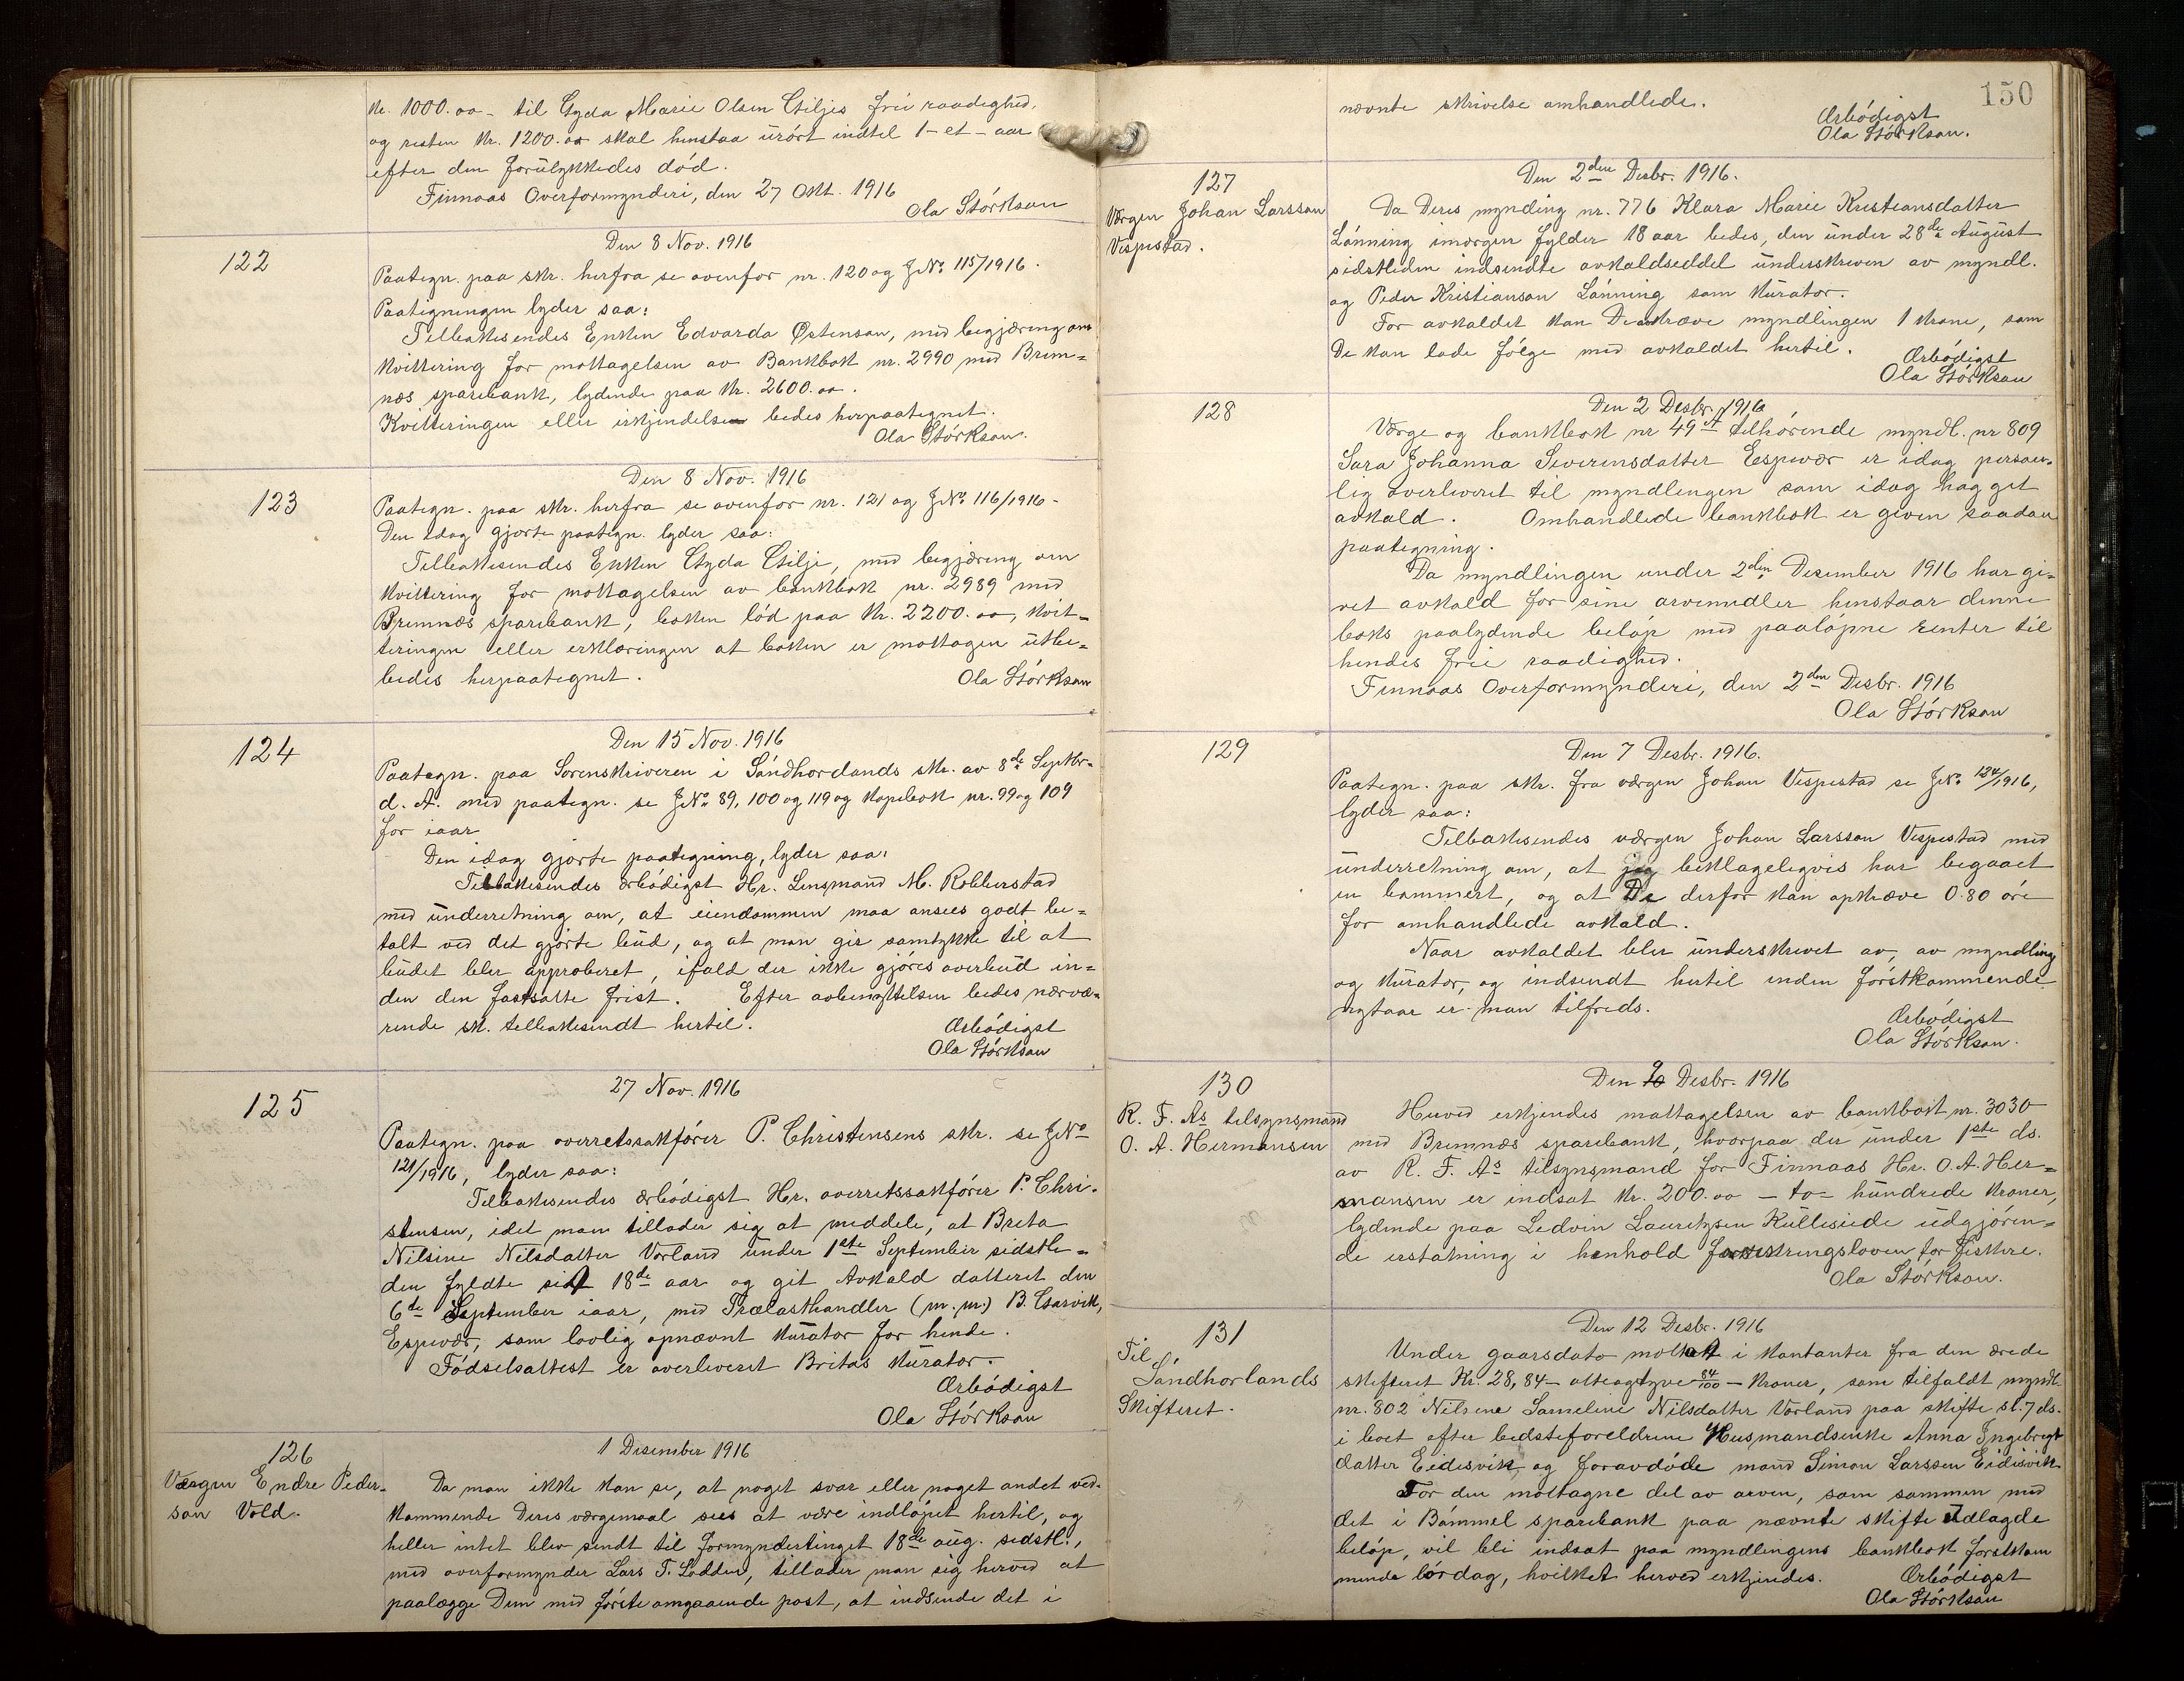 kr. 1000.00 - til Gyda Marie Olsen Giljes frie raadighed,
og resten Kr. 1200.00 skal henstaa urørt indtil 1 - et - aar
efter den forulykkedes død.
Finnaas Overformynderi, den 27 Okt. 1916
Ola Størkson
122
Den 8 Nov. 1916
Paategn. paa skr. herfra se ovenfor nr. 120 og J№ 115/1916.
Paategningen lyder saa:
Tilbakesendes Enken Edvarda Østenson, med begjæring om
kvittering for mottagelsen av Bankbok nr. 2990 med Brem=
nes sparebank, lydende paa Kr. 2600.00.
Kvitteringen eller erkjendelsen bedes herpaategnet.
Ola Størkson.
123
Den 8 Nov. 1916
Paategn. paa skr. herfra se ovenfor nr. 121 og J№ 116/1916 -
Den idag gjorte paategn. lyder saa:
Tilbakesendes Enken Gyda Gilje, med begjæring om
kvittering for mottagelsen av bankbok nr. 2989 med
Bremnæs sparebank, boken lød paa Kr. 2200.00, kvit-
teringen eller erklæringen at boken er mottagen utbe=
bedes herpaategnet.
Ola Størkson
124
Den 15 Nov. 1916
Paategn. paa Sorenskriveren i Søndhordlands skr. av 8de Septbr.
d. A. med paategn. se J№ 89, 100 og 119 og Kopibok nr. 99 og 109
for iaar
Den idag gjorte paategning, lyder saa:
Tilbakesendes ærbødigst Hr. Lensmand M. Robberstad
med underretning om, at eiendommen maa ansees godt be=
talt ved det gjorte bud, og at man gir samtykke til at
budet blir approberet, ifald der ikke gjøres overbud in=
den den fastsatte frist. Efter avbenyttelsen bedes nærvæ=
rende sk. tilbakesendt hertil.
Ærbødigst
Ola Størkson
125
27 Nov. 1916
Paategn. paa overretssakfører P. Christensens skr. se J№
121/1916, lyder saa:
Tilbakesendes ærbødigst Hr. overretssakfører P. Chri-
stensen, idet man tillader sig at meddele, at Breta
Nilsine Nilsdatter Vorland under 1ste September sidstle=
den fyldte sit 18de aar og git Avkald datteret den
6de September iaar, med Trælasthandler (m. m.) B. Gsarvik,
Espevær, som lovlig opnævnt kurator for hende.
Fødselsattest er overleveret Britas kurator.
Ærbødigst
Ola Størkson
126
Værgen Endre Peder-
son Vold.
1 Desember 1916
Da man ikke kan se, at noget svar eller noget andet ved-
kommende Deres værgemaal sees at være indløpet hertil, og
heller intet blev sendt til formyndertinget 18de aug. sidstl.,
med overformynder Lars T. Lodden, tillader man sig herved at
paalægge Dem med første omgaaende post, at indsende det i
150
nævnte skrivelse omhandlede.
Ærbødigst
Ola Størkson.
127
Værgen Johan Larsson
Vespestad.
Den 2den Desbr. 1916.
Da Deres mynding nr. 776 Klara Marie Kristiansdatter
Lønning imorgen fylder 18 aar bedes, den under 28de August
sidstleden indsendte avkaldseddel underskreven av myndl.
og Peder Kristianson Lønning som kurator.
For avkaldet kan De avkræve myndlingen 1 krone, som
De kan lade følge med avkaldet hertil.
Ærbødigst
Ola Størkson
128
Den 2 Desbr. 1916
Værge og bankbok nr 49A tilhørende myndl. nr 809
Sara Johanna Severensdatter Espevær er idag person-
lig overleveret til myndlingen som idag hag get
avkald. Omhandlede bankbok er given saadan
paategning.
Da myndlingen under 2den Desember 1916 har gi=
vet avkald for sine arvemidler henstaar denne
boks paalydende beløp med paaløpne renter til
hendes frie raadighed.
Finnaas Overformynderi, den 2den Desbr. 1916
Ola Størkson
129
Den 7 Desbr. 1916.
Paategn. paa skr. fra værgen Johan Vespestad se J№ 124/1916,
lyder saa:
Tilbakesendes værgen Johan Larsson Vespestad med
underretning om, at jeg beklageligvis har begaaet
en bommert, og at De derfor kan opkræve 0.80 øre
for omhandlede avkald.
Naar avkaldet blir underskrevet av, av myndling
og kurator, og indsendt hertil inden førstkommende
nytaar er man tilfreds.
Ærbødigst
Ola Størkson.
130
R. F. As tilsynsmand
O. A. Hermansen
Den 9 Desbr. 1916
Herved erkjendes mottagelsen av bankbok nr. 3030
med Bremnæs sparebank, hvorpaa der under 1ste ds.
av R. F. As tilsynsmand for Finnaas Hr. O. A. Her=
mansen er indsat Kr. 200.00 - to - hundrede kroner,
lydende paa Ledvin Lauritzsen Kulleseide udgjøren=
de erstatning i henhold forsikringsloven for fiskere.
Ola Størkson.
131
Til
Søndhorlands
Skifteret.
Den 12 Desbr. 1916
Under gaarsdato mottat i kontanter fra den ærede
skifteret Kr. 28,84 - otteogtyve 84/100 - kroner, som tilfaldt myndl.
nr. 802 Nilsine Sameline Nilsdatter Vorland paa skifte sl. 7 ds.
i boet efter bedsteforeldrene Husmandsenke Anna Ingebrigt
datter Eidesvik og foravdøde mand Simon Larssen Eidesvik
For den mottagne del av arven, som sammen med
det i Bømmel sparebank paa nævnte skifte Udlagde
beløp, vil bli indsat paa myndlingens bankbok førstkom
mende lørdag, hvilket herved erkjendes.
Ærbødigst
Ola Størkson